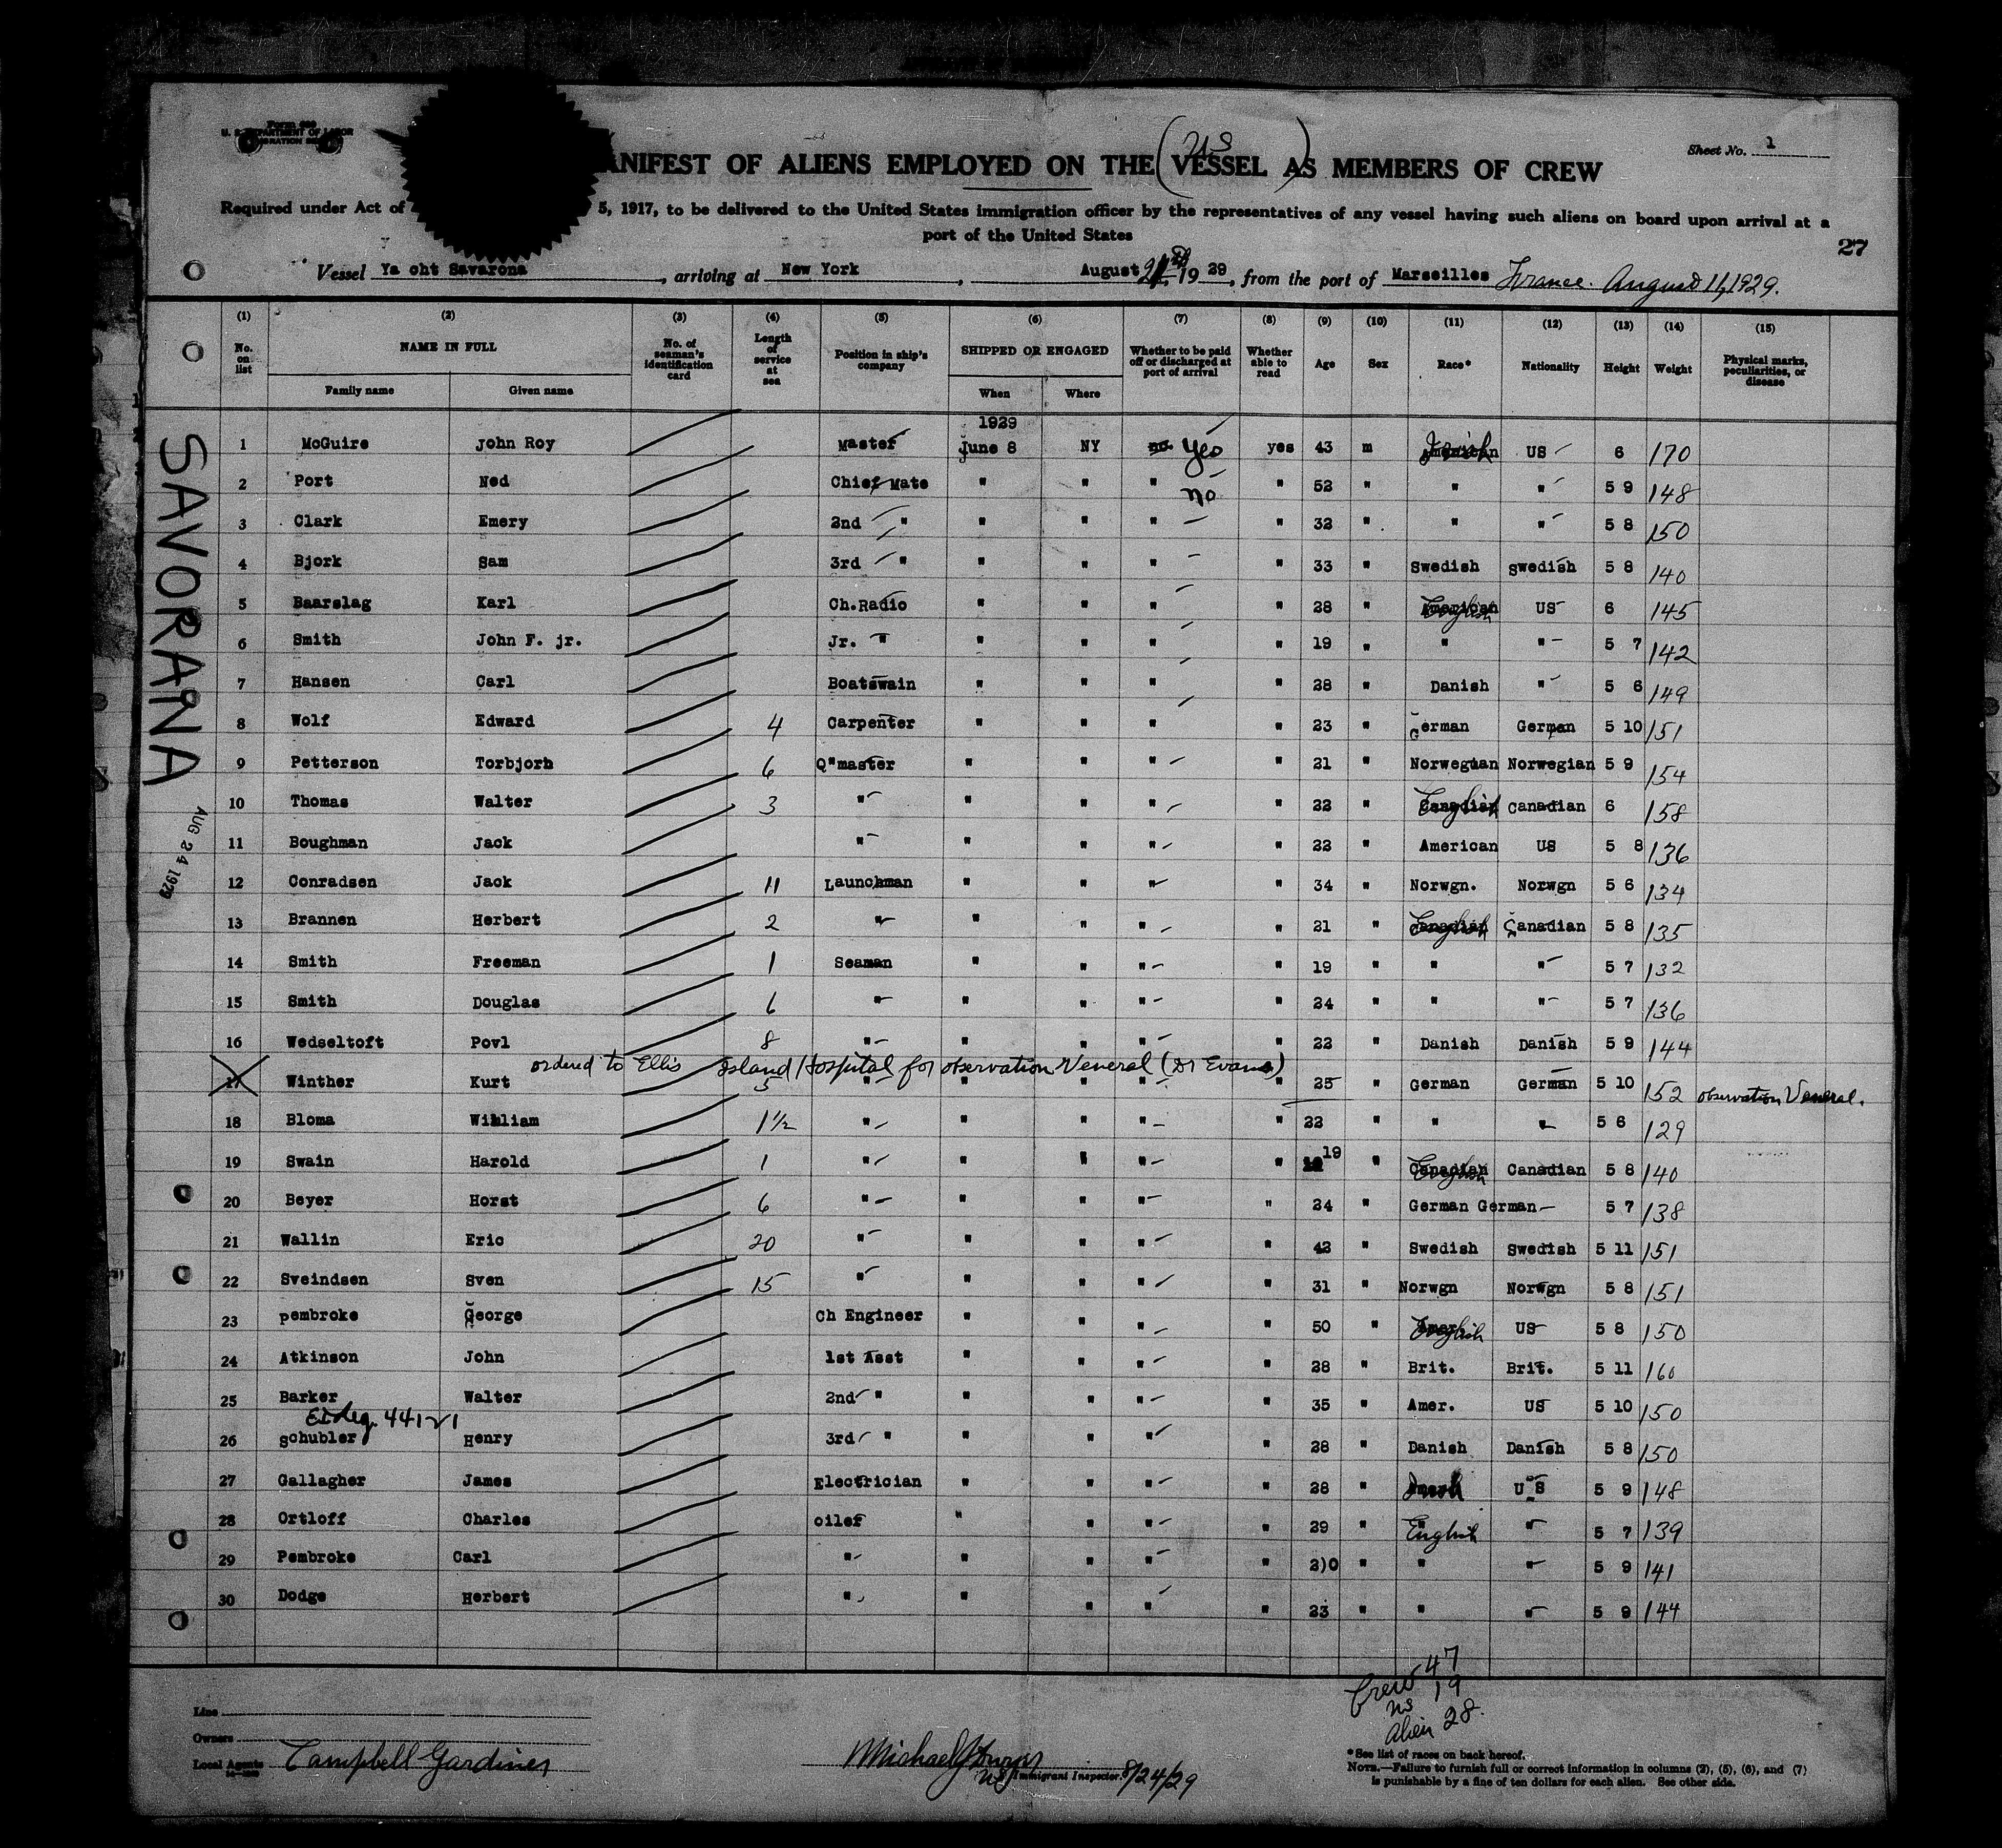 Form 680
U. S. DEPARTMENT OF LABOR
IMMIGRATION SERVICE
Sheet No. 1
ANIFEST OF ALIENS EMPLOYED ON THE (VESSEL US) AS MEMBERS OF CREW
Required under Act of 5, 1917, to be delivered to the United States immigration officer by the representatives of any vessel having such aliens on board upon arrival at a
port of the United States
27
Vessel Ya cht Savarona, arriving at New York, August 24th, 19 29, from the port of Marseilles France. August 11, 1929.
(1) (2) (3) (4) (5) (6) (7) (8) (9) (10) (11) (12) (13) (14) (15)
No. on list NAME IN FULL Family name Given name No. of seaman's identification card Length of service at sea Position in ship's company SHIPPED OR ENGAGED When Where Whether to be paid off or discharged at port of arrival Whether able to read Age Sex Race* Nationality Height Weight Physical marks, peculiarities, or disease
1929
1 McGuire John Roy Master June 8 NY no Yes yes 43 m Irish US 6 170
2 Port Ned Chief Mate " " " no " 52 " " " 5 9 148
3 Clark Emery 2nd " " " " " 32 " " " 5 8 150
4 Bjork Sam 3rd " " " " " 33 " Swedish Swedish 5 8 140
5 Baarslag Karl Ch.Radio " " " " 28 " English US 6 145
6 Smith John F. jr. Jr. " " " " " 19 " " " 5 7 142
7 Hansen Carl Boatswain " " " " 28 " Danish " 5 6 149
8 Wolf Edward 4 Carpenter " " " " 23 " German German 5 10 151
9 Petterson Torbjorn 6 Q"master " " " " 21 " Norwegian Norwegian 5 9 154
10 Thomas Walter 3 " " " " " 22 " English Canadian 6 158
11 Boughman Jack " " " " " 22 " American US 5 8 136
12 Conradsen Jack 11 Launchman " " " " 34 " Norwgn. Norwgn 5 6 134
13 Brannen Herbert 2 " " " " " 21 " English Canadian 5 8 135
14 Smith Freeman 1 Seaman " " " " 19 " " " 5 7 132
15 Smith Douglas 6 " " " " " 24 " " " 5 7 136
16 Wedseltoft Povl 8 " " " " " 22 " Danish Danish 5 9 144
ordered to Ellis Island Hospital for observation Veneral (Dr Evans)
17 Winther Kurt 5 " " " " " 25 " German German 5 10 152 observation Veneral.
18 Bloma William 1½ " " " " " 22 " " " 5 6 129
19 Swain Harold 1 " " " " " 19 " English Canadian 5 8 140
20 Beyer Horst 6 " " " " " 24 " German German 5 7 138
21 Wallin Eric 20 " " " " " 42 " Swedish Swedish 5 11 151
22 Sveindsen Sven 15 " " " " " 31 " Norwgn Norwgn 5 8 151
23 pembroke George Ch Engineer " " " 50 " English US 5 8 150
24 Atkinson John 1st Asst " " " " 28 " Brit. Brit. 5 11 160
25 Barker Walter 2nd " " " " " 35 " Amer. US 5 10 150
26 Schubler Henry 3rd " " " " " 28 " Danish Danish 5 8 150
27 Gallagher James Electrician " " " " 28 " US 5 9 148
28 Ortloff Charles oiler " " " " 29 " English " 5 7 139
29 Pembroke Carl " " " " " 2)0 " " " 5 9 141
30 Dodge Herbert " " " " " 23 " " " 5 9 144
SAVORANA
AUG 24 1929
Crew 47
US 19
Alien 28.
Line
Owners
Local Agents Campbell Gardiner
Immigrant Inspector. 8/24/29
*See list of races on back hereof.
NOTE.—Failure to furnish full or correct information in columns (2), (5), (6), and (7)
is punishable by a fine of ten dollars for each alien. See other side.